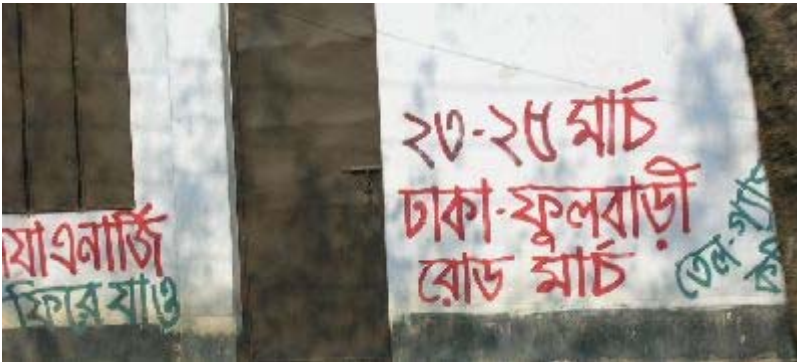 এনার্জি
ফিরে যাও
২৩-২৫ মার্চ
ঢাকা-ফুলবাড়ী
রোড মার্চ
তেল-গ্যাস